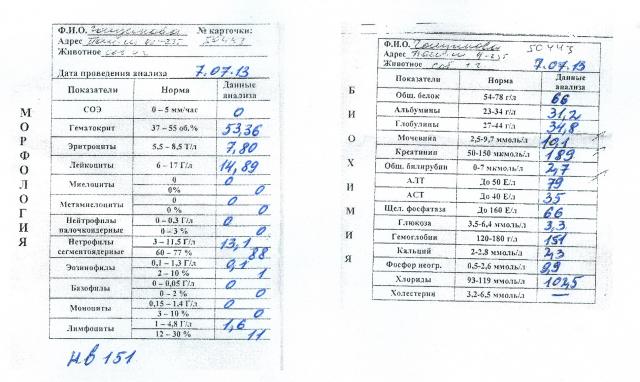 МОРФОЛОГИЯ
Ф.И.О. № карточки:
Адрес 50443
Животное
Дата проведения анализа 7.07.13
Показатели Норма Данные анализа
СОЭ 0 – 5 мм/час 0
Гематокрит 37 – 55 об.% 53,36
Эритроциты 5,5 – 8,5 Т/л 7,80
Лейкоциты 6 – 17 Г/л 14,89
Миелоциты 0 0
0% 0
Метамиелоциты 0 0
0 % 0
Нейтрофилы палочкоядерные 0 – 0,3 Г/л 0
0 – 3 % 0
Нетрофилы сегментоядерные 3 – 11,5 Г/л 13,1
60 – 77 % 88
Эозинофилы 0,1 – 1,3 Г/л 0,1
2 – 10 % 1
Базофилы 0 – 0,05 Г/л 0
0 – 2 % 0
Моноциты 0,15 – 1,4 Г/л 0
3 – 10 % 0
Лимфоциты 1 – 4,8 Г/л 1,6
12 – 30 % 11
Нв 151
БИОХИМИЯ
Ф.И.О. 50443
Адрес
Животное 7.07.13
Показатели Норма Данные анализа
Общ. белок 54-78 г/л 66
Альбумины 23-34 г/л 31,2
Глобулины 27-44 г/л 34,8
Мочевина 2,5-9,7 ммоль/л 10,1
Креатинин 50-150 мкмоль/л 189
Общ. билирубин 0-7 мкмоль/л 2,7
АЛТ До 50 Е/л 79
АСТ До 40 Е/л 35
Щел. фосфатаза До 160 Е/л 66
Глюкоза 3,5-6,4 ммоль/л 3,3
Гемоглобин 120-180 г/л 151
Кальций 2-2,8 ммоль/л 2,3
Фосфор неорг. 0,5-2,6 ммоль/л
Хлориды 93-119 ммоль/л 102,5
Холестерин 3,2-6,5 ммоль/л —